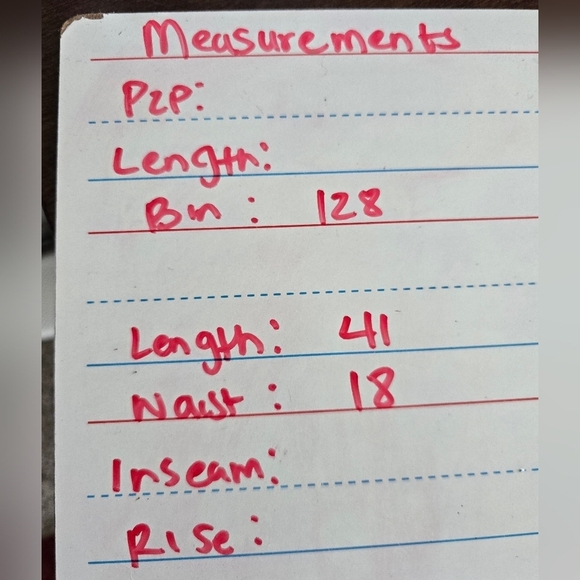 Measurements
P2P:
Length:
Bin: 128
Length: 41
Waist: 18
Inseam:
Rise: